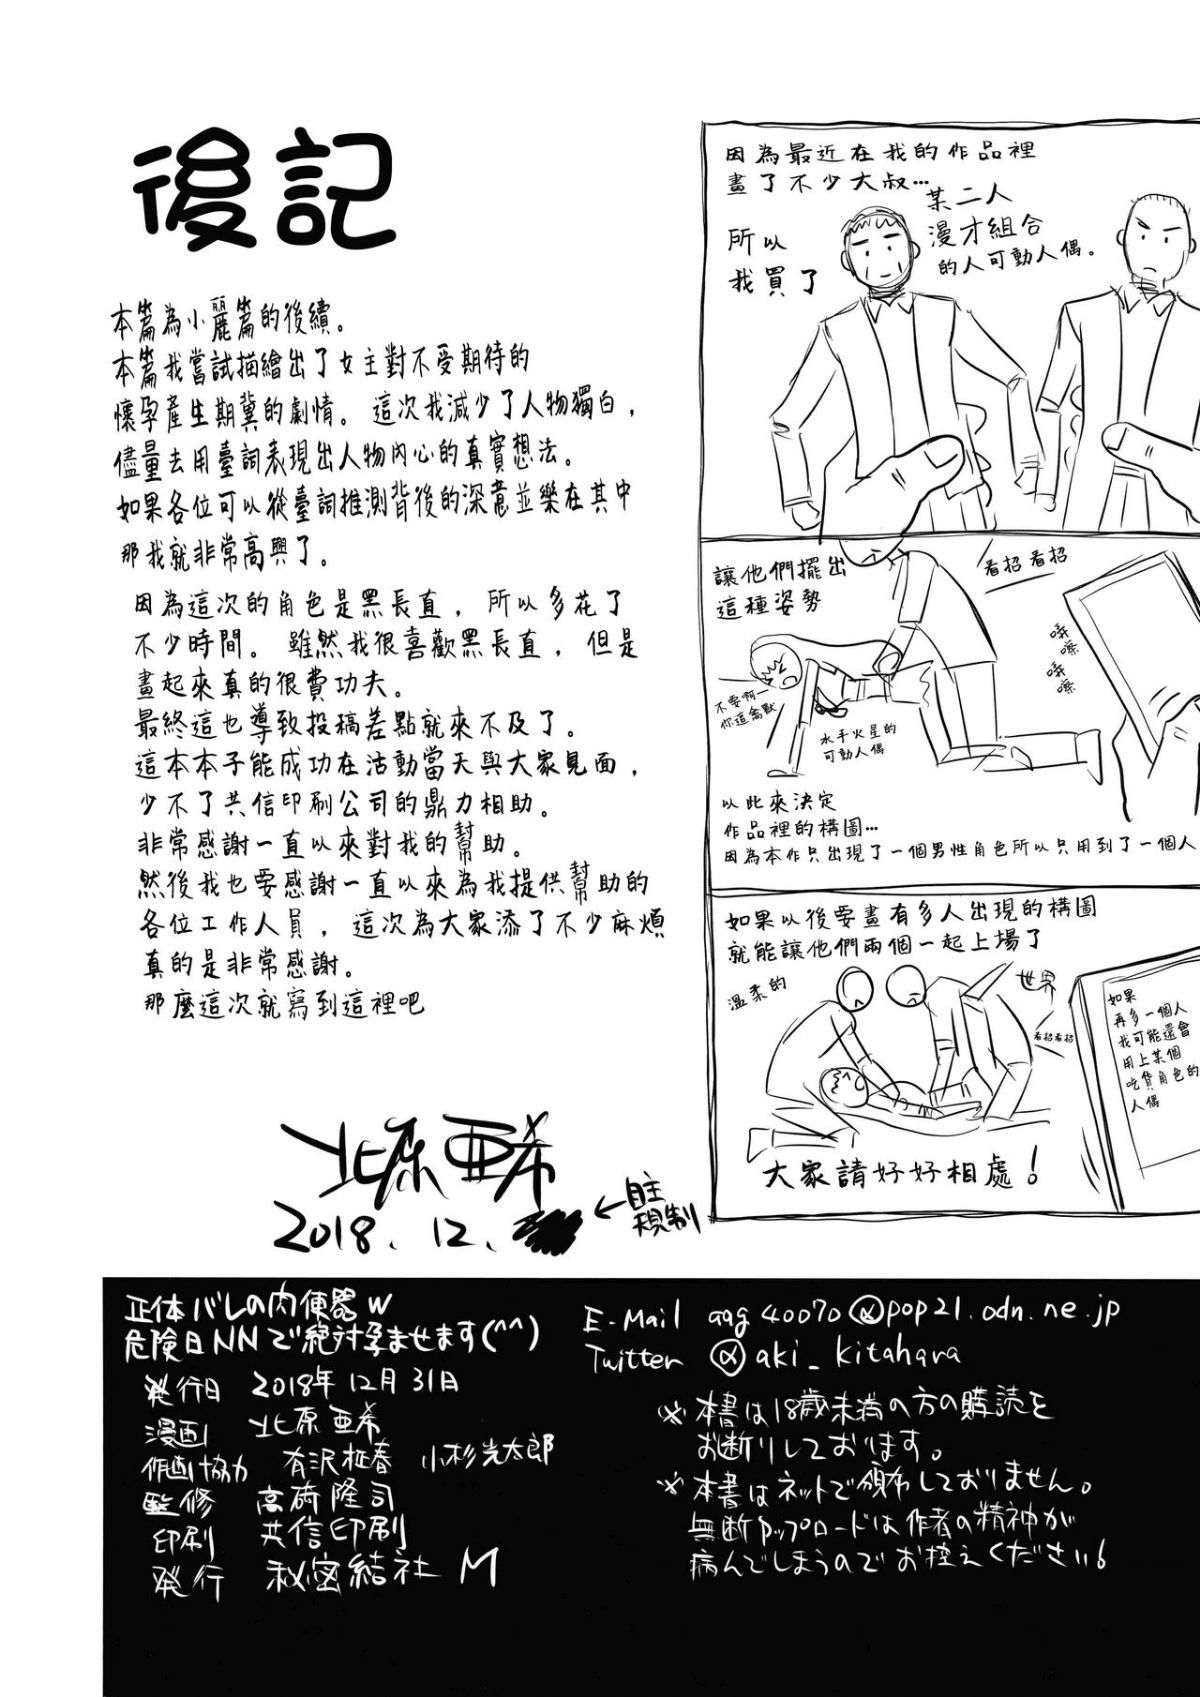 後記
本篇為小麗篇的後續。
本篇我嘗試描繪出了女主對不受期待的
懷孕產生期冀的劇情。這次我減少了人物獨白,
儘量去用臺詞表現出人物內心的真實想法。
如果各位可以從臺詞推測背後的深意並樂在其中
那我就非常高興了。
因為這次的角色是黑長直,所以多花了
不少時間。雖然我很喜歡黑長直,但是
畫起來真的很費功夫。
最終這也導致投稿差點就來不及了。
這本本子能成功在活動當天與大家見面,
少不了共信印刷公司的鼎力相助。
非常感謝一直以來對我的幫助。
然後我也要感謝一直以來為我提供幫助的
各位工作人員,這次為大家添了不少麻煩
真的是非常感謝。
那麼這次就寫到這裡吧
北原亜希
2018.12.
←自主
規制
因為最近在我的作品裡
畫了不少大叔…
所以
我買了
某二人
漫才組合
的人可動人偶。
讓他們擺出
這種姿勢
看招看招
不要啊一
你這禽獸
水手火星的
可動人偶
嚓
嚓
以此來決定
作品裡的構圖…
因為本作只出現了一個男性角色所以只用到了一個人
如果以後要畫有多人出現的構圖
就能讓他們兩個一起上場了
溫柔的
世界
看招看招
如果
再多一個人
我可能還會
用上某個
吃貨角色的
人偶
大家請好好相處!
正体バレの肉便器w
危険日NNで絶対孕ませます(^^)
発行日 2018年12月31日
漫画 北原亜希
作画協力 有沢柾春 小杉光太郎
監修 高崎隆司
印刷 共信印刷
発行 秘密結社M
E-Mail aag40070@pop21.odn.ne.jp
Twitter @aki_kitahara
※本書は18歳未満の方の購読を
お断りしております。
※本書はネットで頒布しておりません。
無断アップロードは作者の精神が
病んでしまうのでお控えください!